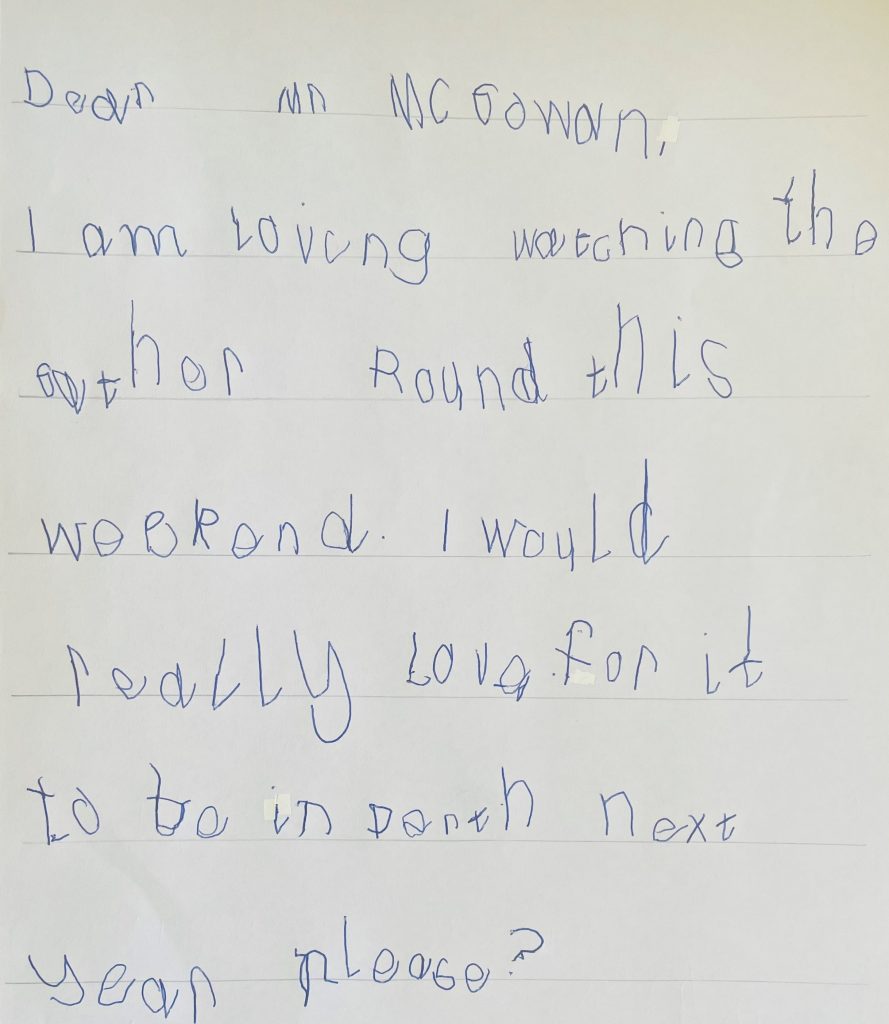 Dear Mr MC Gowan,
I am loving watching the
gather Round this
weekend. I would
really Love for it
to be in Perth next
year please?